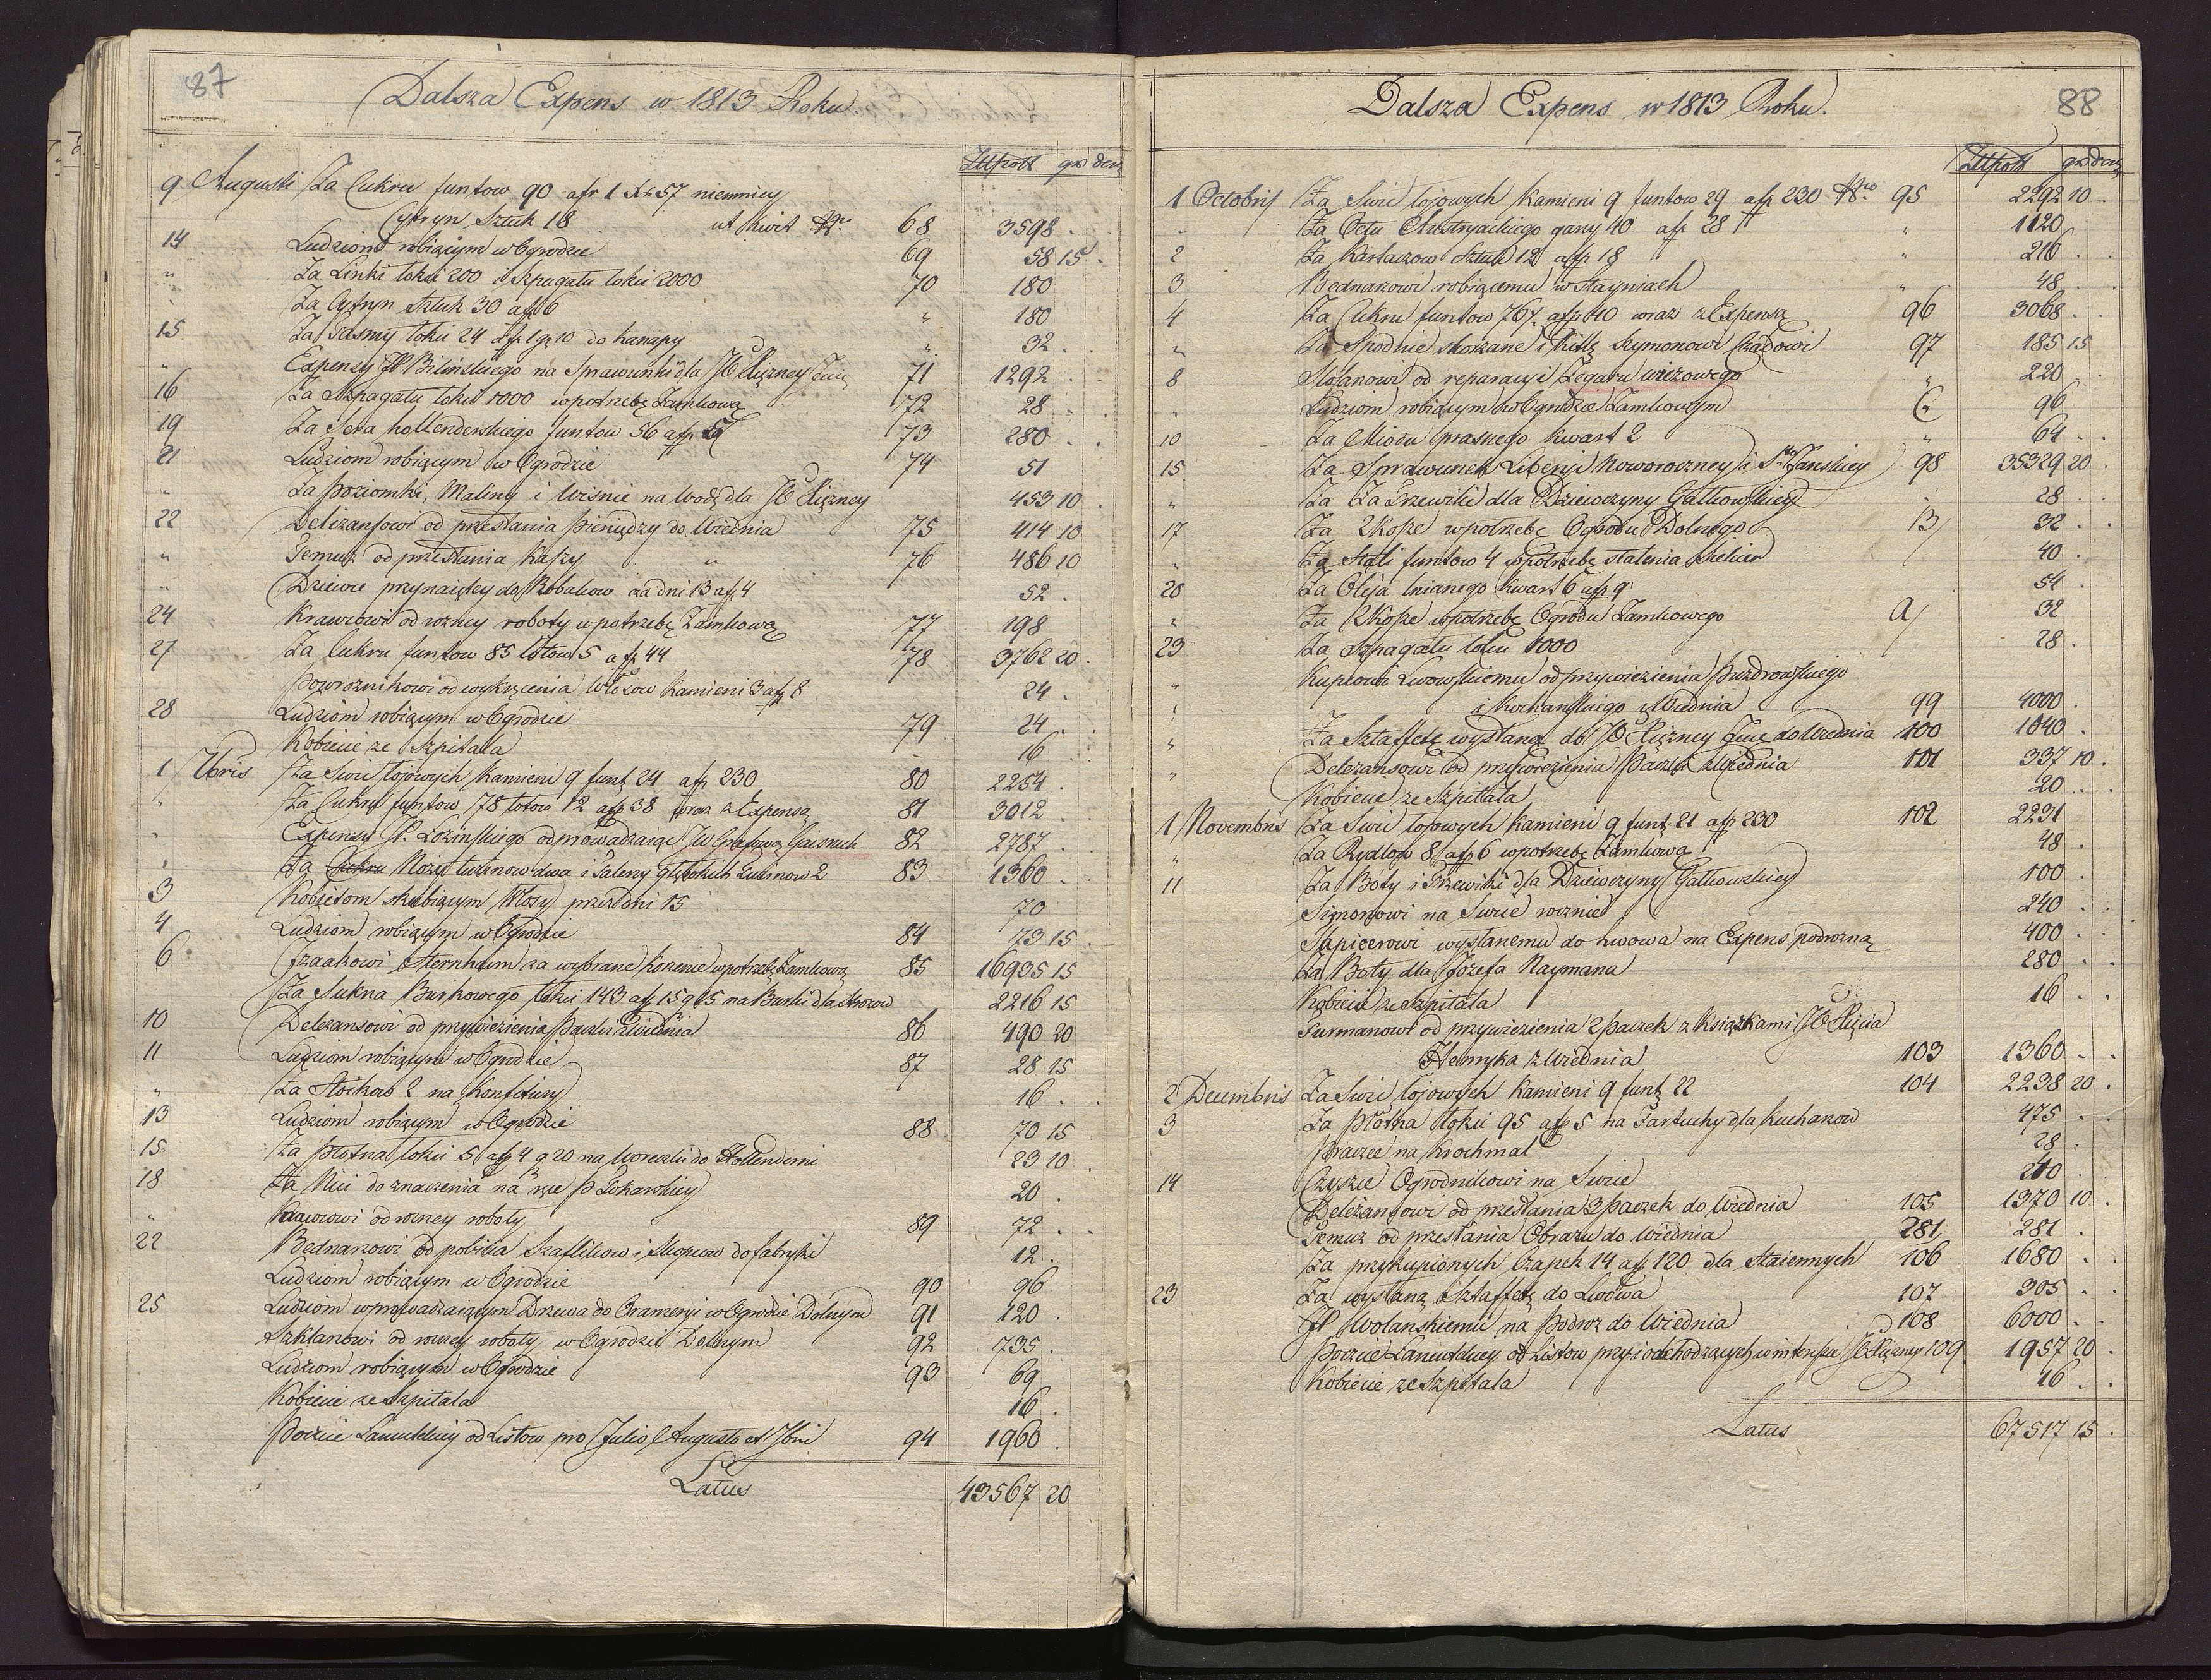 87
Dalsza Expens w 1813 Roku.
Złtpolł gr den
9 Augusti Za Cukru funtow 90 afr 1 Xr 57 niemniey
Cytryn Sztuk 18 ut Kwit Nro 68 3598 . .
14 Ludziom robiącym w Ogrodzie 69 58 15 .
" Za Linki łokci 200 i Szpagatu łokci 2000 70 180
" Za Cytryn Sztuk 30 afp 6 " 180
15 Za Tasmy łokci 24 afp 1 gr 10 do kanapy " 32 .
" Expensy JP Bilińskiego na Sprawunki dla JO Xiężney 71 1292 . .
16 Za Szpagatu łokci 1000 w potrzebę Zamkową 72 28 . .
19 Za Sera hollenderskiego funtow 56 afp 5 73 280 . .
21 Ludziom robiącym w Ogrodzie 74 51
" Za Poziomki, Maliny i Wisnie na Wodę dla JO Xiężney 453 10 .
22 Deliżansowi od przesłania pieniędzy do Wiednia 75 414 10
" Temuż od przesłania Kaszy " 76 486 10
" Dziewce przynaiętey do Robakow za dni 13 afp 4 52 .
24 Krawcowi od rozney roboty w potrzebę Zamkową 77 198
27 Za Cukru funtow 85 łotow 5 afp 44 78 3762 20 .
Powroznikowi od wykręcenia Włosow Kamieni 3 afp 8 24 .
28 Ludziom robiącym w Ogrodzie 79 24 .
Kobiecie ze Szpitala 16 .
1 7bris Za Swic łojowych Kamieni 9 funt 24 afp 230 80 2254 .
" Za Cukru funtow 78 łotow 12 afp 38 wraz z Expensą 81 3012 . .
" Expensy JP. Łozińskiego odprowadzaiąc JW Grafową Gaisruck 82 2787 . .
" Za Cukru Nozy tuzinow dwa i Talerzy głębokich Tuzinow 2 83 1360 . .
3 Kobietom skubiącym Włosy przez dni 15 70
4 Ludziom robiącym w Ogrodzie 84 73 15 .
6 Izaakowi Sternheim za wybrane Korzenie w potrzebę Zamkową 85 16935 15
Za Sukna Burkowego łokci 143 afp 15 g 15 na Burki dla Strozow 2216 15
10 Deleżansowi od przywiezienia Paczki z Wiednia 86 490 20
11 Ludziom robiącym w Ogrodzie 87 28 15
" Za Stoikow 2 na Konfitury 16 . .
13 Ludziom robiącym w Ogrodzie 88 70 15
15 Za Płotna łokci 5 afp 4 g 20 na Woreczki do Hollenderni 23 10
18 Za Nici do znaczenia na ręce P Tokarskiey 20 .
" Krawcowi od rozney roboty 89 72 . .
22 Bednarzowi od pobicia Szaflikow i Skopcow do fabryki 12 .
Ludziom robiącym w Ogrodzie 90 96
25 Ludziom wprowadzaiącym Drzewa do Oranzeryi w Ogrodzie Dolnym 91 120 .
Szklarzowi od rozney roboty w Ogrodzie Dolnym 92 735 .
Ludziom robiącym w Ogrodzie 93 69
Kobiecie ze Szpitala 16 .
Poczcie Łancutskiey od Listow pro Julio, Augusto et 7bri 94 1960 .
Latus 43567 20
88
Dalsza Expens w 1813 Roku.
Złtpolł gr den
1 Octobris Za Swic łojowych Kamieni 9 funtow 29 afp 230 Nro 95 2292 10 .
" Za Octu Austryackiego garcy 40 afp 28 " 1120
2 Za Kartaczow Sztuk 12 afp 18 " 216 .
3 Bednarzowi robiącemu w Stayniach " 48 . .
4 Za Cukru funtow 767 afp 40 wraz z Expensą 96 3068 . .
" Za Spodnie skorzane i Kitlę Szymonowi Czadowi 97 185 15
8 Stolarzowi od reparacyi Zegaru wiezowego " 220 .
" Ludziom robiącym w Ogrodzie Zamkowym C 96
10 Za Miodu przasnego kwart 2 " 64 . .
15 Za Sprawunek Liberyi Noworoczney i Sto Janskiey 98 35329 20 .
" Za Za Trzewiki dla Dziewczyny Gałkowskiey " 28 .
17 Za 2 Kosze w potrzebę Ogrodu Dolnego B 32 . .
" Za Stali funtow 4 w potrzebę stalenia Siekier 40 .
20 Za Oleju lnianego kwart 6 afp 9 54 .
" Za 2 Kosze w potrzebę Ogrodu Zamkowego a 32
23 Za Szpagatu łokci 1000 28 .
" Kupcowi Lwowskiemu od przywiezienia Puzdrowskiego
" i Kochanskiego z Wiednia 99 4000 .
" Za Sztaffetę wysłaną do JO Xiężney do Wiednia 100 1040 .
" Deleżansowi od przywiezienia Paczki z Wiednia 101 337 10 .
Kobiecie ze Szpitala 20 . .
1 Novembris Za Swic łojowych Kamieni 9 funt 21 afp 230 102 2231
" Za Rydlow 8 afp 6 w potrzebę Zamkową 48 .
11 Za Boty i Trzewiki dla Dziewczyny Gałkowskiey 100 .
Simonowi na Swice rocznie 240 . .
Tapicerowi wysłanemu do Lwowa na Expens podrozną 400 . .
Za Boty dla Jozefa Naymana 280 . .
Kobiecie ze Szpitala 16 . .
Furmanowi od przywiezienia 2 Paczek z Ksiązkami JO Xięcia
Henryka z Wiednia 103 1360 . .
2 Decembris Za Swic łojowych Kamieni 9 funt 22 104 2238 20 .
3 Za Płotna łokci 95 afp 5 na Fartuchy dla Kucharzow 475 . .
Praczce na Krochmal 28 .
14 Czyzce Ogrodnikowi na Swice 240 .
Deleżansowi od przesłania 3 Paczek do Wiednia 105 1370 10 .
Temuz od przesłania Obrazu do Wiednia 281 281 .
Za przykupionych Czapek 14 afp 120 dla Staiennych 106 1680 . .
23 Za wysłaną Sztaffetę do Lwowa 107 305 . .
JP Wolanskiemu na Podroz do Wiednia 108 6000 . .
Poczcie Łancutskiey od Listow przy i odchodzących w interesie JO Xiężney 109 1957 20 .
Kobiecie ze Szpitala 16 . .
Latus 67517 15 .